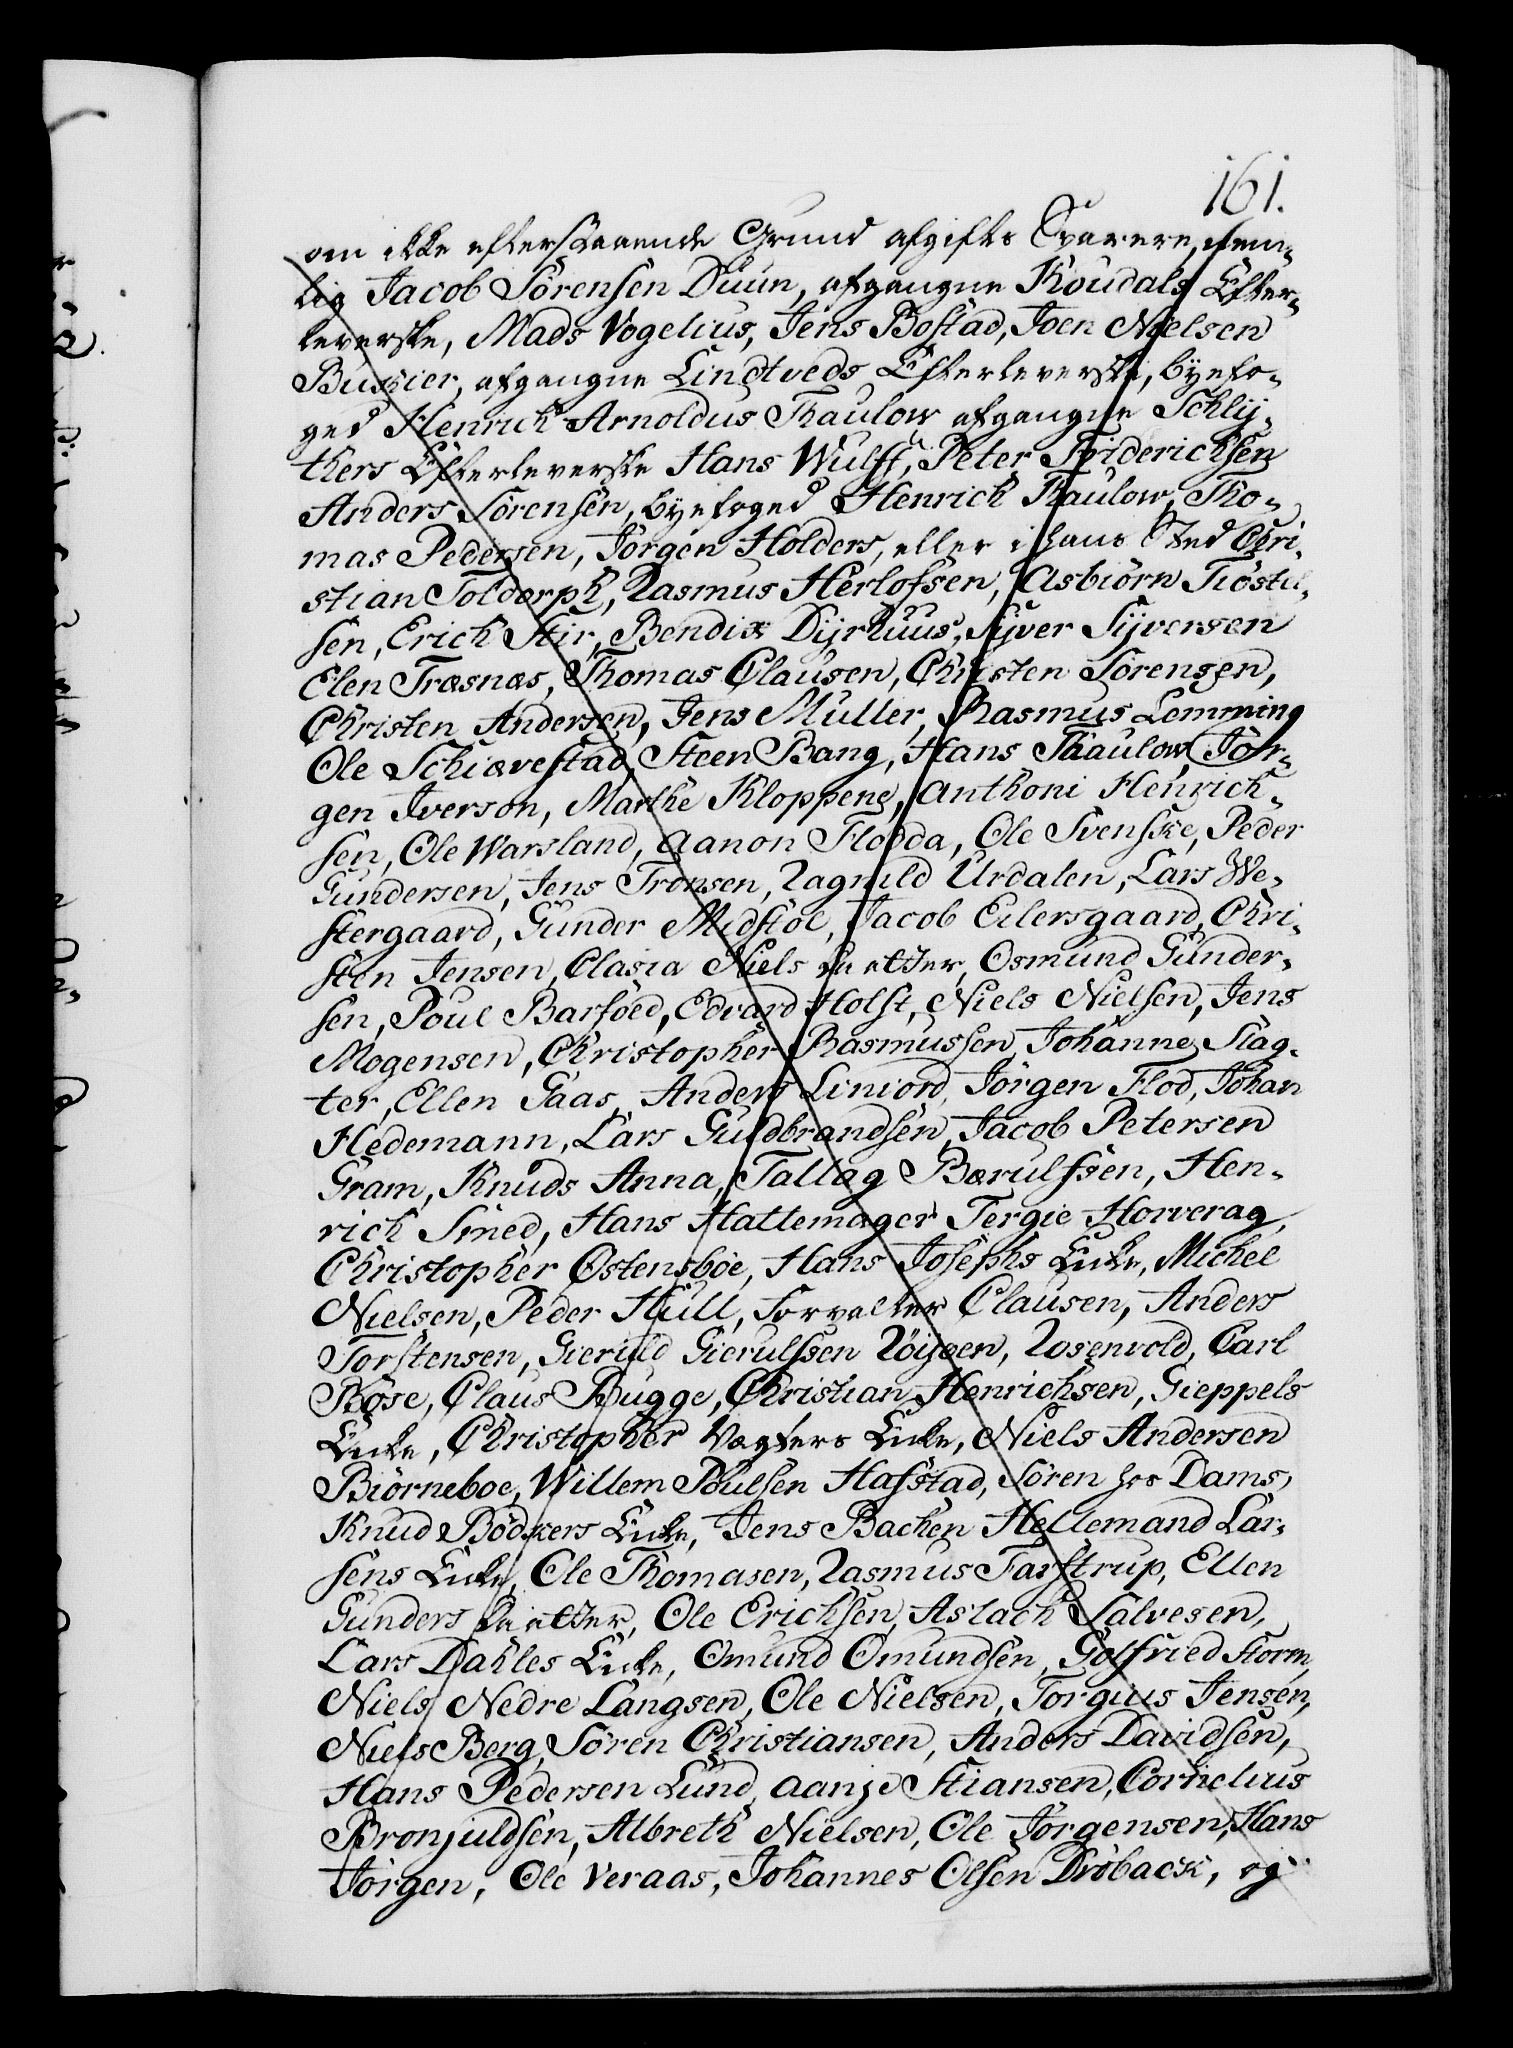 161.
om ikke efterstaaende Grund afgifts Svarere, nem-
lig Jacob Sörensen Duun, afgangne Roudals Efter-
leverske, Mads Vogelius, Jens Bostad, Joen Nielsen
Buskier, afgangne Lindtveds Efterleverske, byefo-
ged Henrich Arnoldus Thaulow afgangne Schlij-
thers Efterleverske Hans Wulff, Peter Friderichsen
Anders Sörensen, byefoged Henrich Thaulow, Tho-
mas Pedersen, Jörgen Holders, eller i hans Sted Chri-
stian Toldorph, Rasmus Herlofsen, Asbiörn Tiöstel-
sen, Erich Stir, Bendix Dyrhuus, Sijver Sijversen
Elen Træsnæs, Thomas Clausen, Christen Sörensen,
Christen Andersen, Jens Muller, Rasmus Lemming
Ole Schiævestad, Steen Bang, Hans Thaulow, Jör-
gen Iverson, Marthe Kloppene, Anthoni Henrich-
sen, Ole Warsland, Aanon Flodda, Ole Svenske, Peder
Gundersen, Jens Tronsen, Ragnild Urdalen, Lars We-
stergaard, Gunder Midstöl, Jacob Eilersgaard, Chri-
sten Jensen, Clasia Niels Daatter, Osmund Gunder-
sen, Poul Barföed, Edvard Holst, Niels Nielsen, Jens
Mogensen, Christopher Rasmussen, Johanne Slag-
ter, Ellen Gaas, Anders Liniord, Jörgen Flod, Johan
Hedemann, Lars Guldbrandsen, Jacob Petersen
Gram, Knuds Anna, Tallag Bærulfsen, Hen-
rich Smed, Hans Hattemager Tergie Horverag,
Christopher Östensböe, Hans Josephs Enke, Michel
Nielsen, Peder Hüll, Forvalter Clausen, Anders
Torstensen, Gieruld Gierulssen Röijsen, Rosenvold, Carl
Röse, Claus Bugge, Christian Henrichsen, Gieppels
Enke, Christopher Vægters Enke, Niels Andersen
Biörneboe, Willem Poulsen Hafstad, Sören hos Dams,
Knud Bödkers Enke, Jens Bachen Hellemand Lar-
sens Enke, Ole Thomasen, Rasmus Farstrup, Ellen
Gunders Daatter, Ole Erichsen, Aslach Salvesen,
Lars Dahles Enke, Omund Omundsen, Golfried Storm,
Niels Nedre Langsen, Ole Nielsen, Torgius Jensen,
Niels Berg, Sören Christiansen, Anders Davidsen,
Hans Pedersen Lund, Aanje Stiansen, Cornelius
Bronjuldsen, Albreth Nielsen, Ole Jörgensen, Hans
Jörgen, Ole Veraas, Johannes Olsen Dröback, og